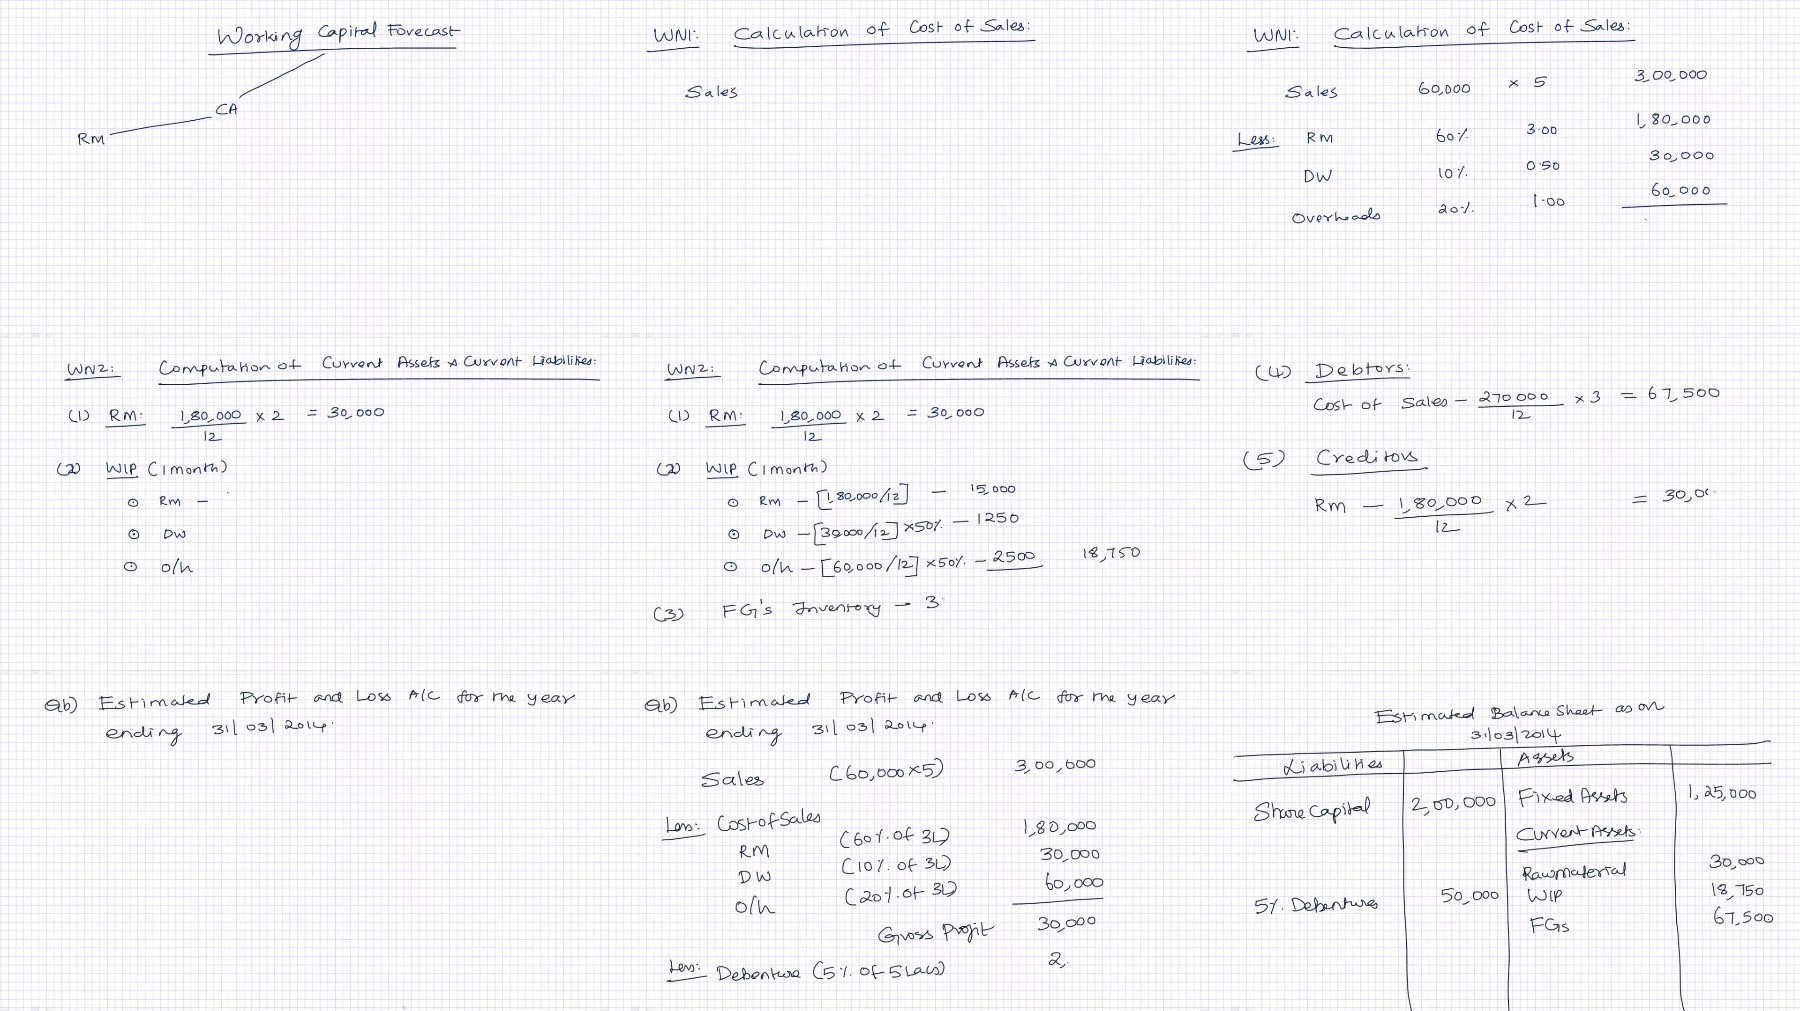 Working Capital Forecast
CA
RM
WN1: Calculation of Cost of Sales:
Sales
WN1: Calculation of Cost of Sales:
Sales 60,000 × 5 3,00,000
Less: RM 60% 3.00 1,80,000
DW 10% 0.50 30,000
Overheads 20% 1.00 60,000
WN2: Computation of Current Assets & Current Liabilities:
(1) RM: 1,80,000 × 2 = 30,000
12
(2) WIP (1 month)
RM -
DW
O/h
WN2: Computation of Current Assets & Current Liabilities:
(1) RM: 1,80,000 × 2 = 30,000
12
(2) WIP (1 month)
RM - [1,80,000/12] - 15,000
DW - [30,000/12] ×50% - 1250
O/h - [60,000/12] ×50% - 2500 18,750
(3) FG's Inventory - 3
(4) Debtors:
Cost of Sales - 270000 × 3 = 67,500
12
(5) Creditors
RM - 1,80,000 × 2 = 30,00
12
Qb) Estimated Profit and Loss A/C for the year
ending 31/03/2014.
Qb) Estimated Profit and Loss A/C for the year
ending 31/03/2014.
Sales (60,000×5) 3,00,000
Less: Cost of Sales
RM (60% of 3L) 1,80,000
DW (10% of 3L) 30,000
O/h (20% of 3L) 60,000
Gross Profit 30,000
Less: Debenture (5% of 5 Lacs) 2,
Estimated Balance Sheet as on
31/03/2014
Liabilities Assets
Share Capital 2,00,000 Fixed Assets 1,25,000
Current Assets:
Raw material 30,000
5% Debentures 50,000 WIP 18,750
FGs 67,500